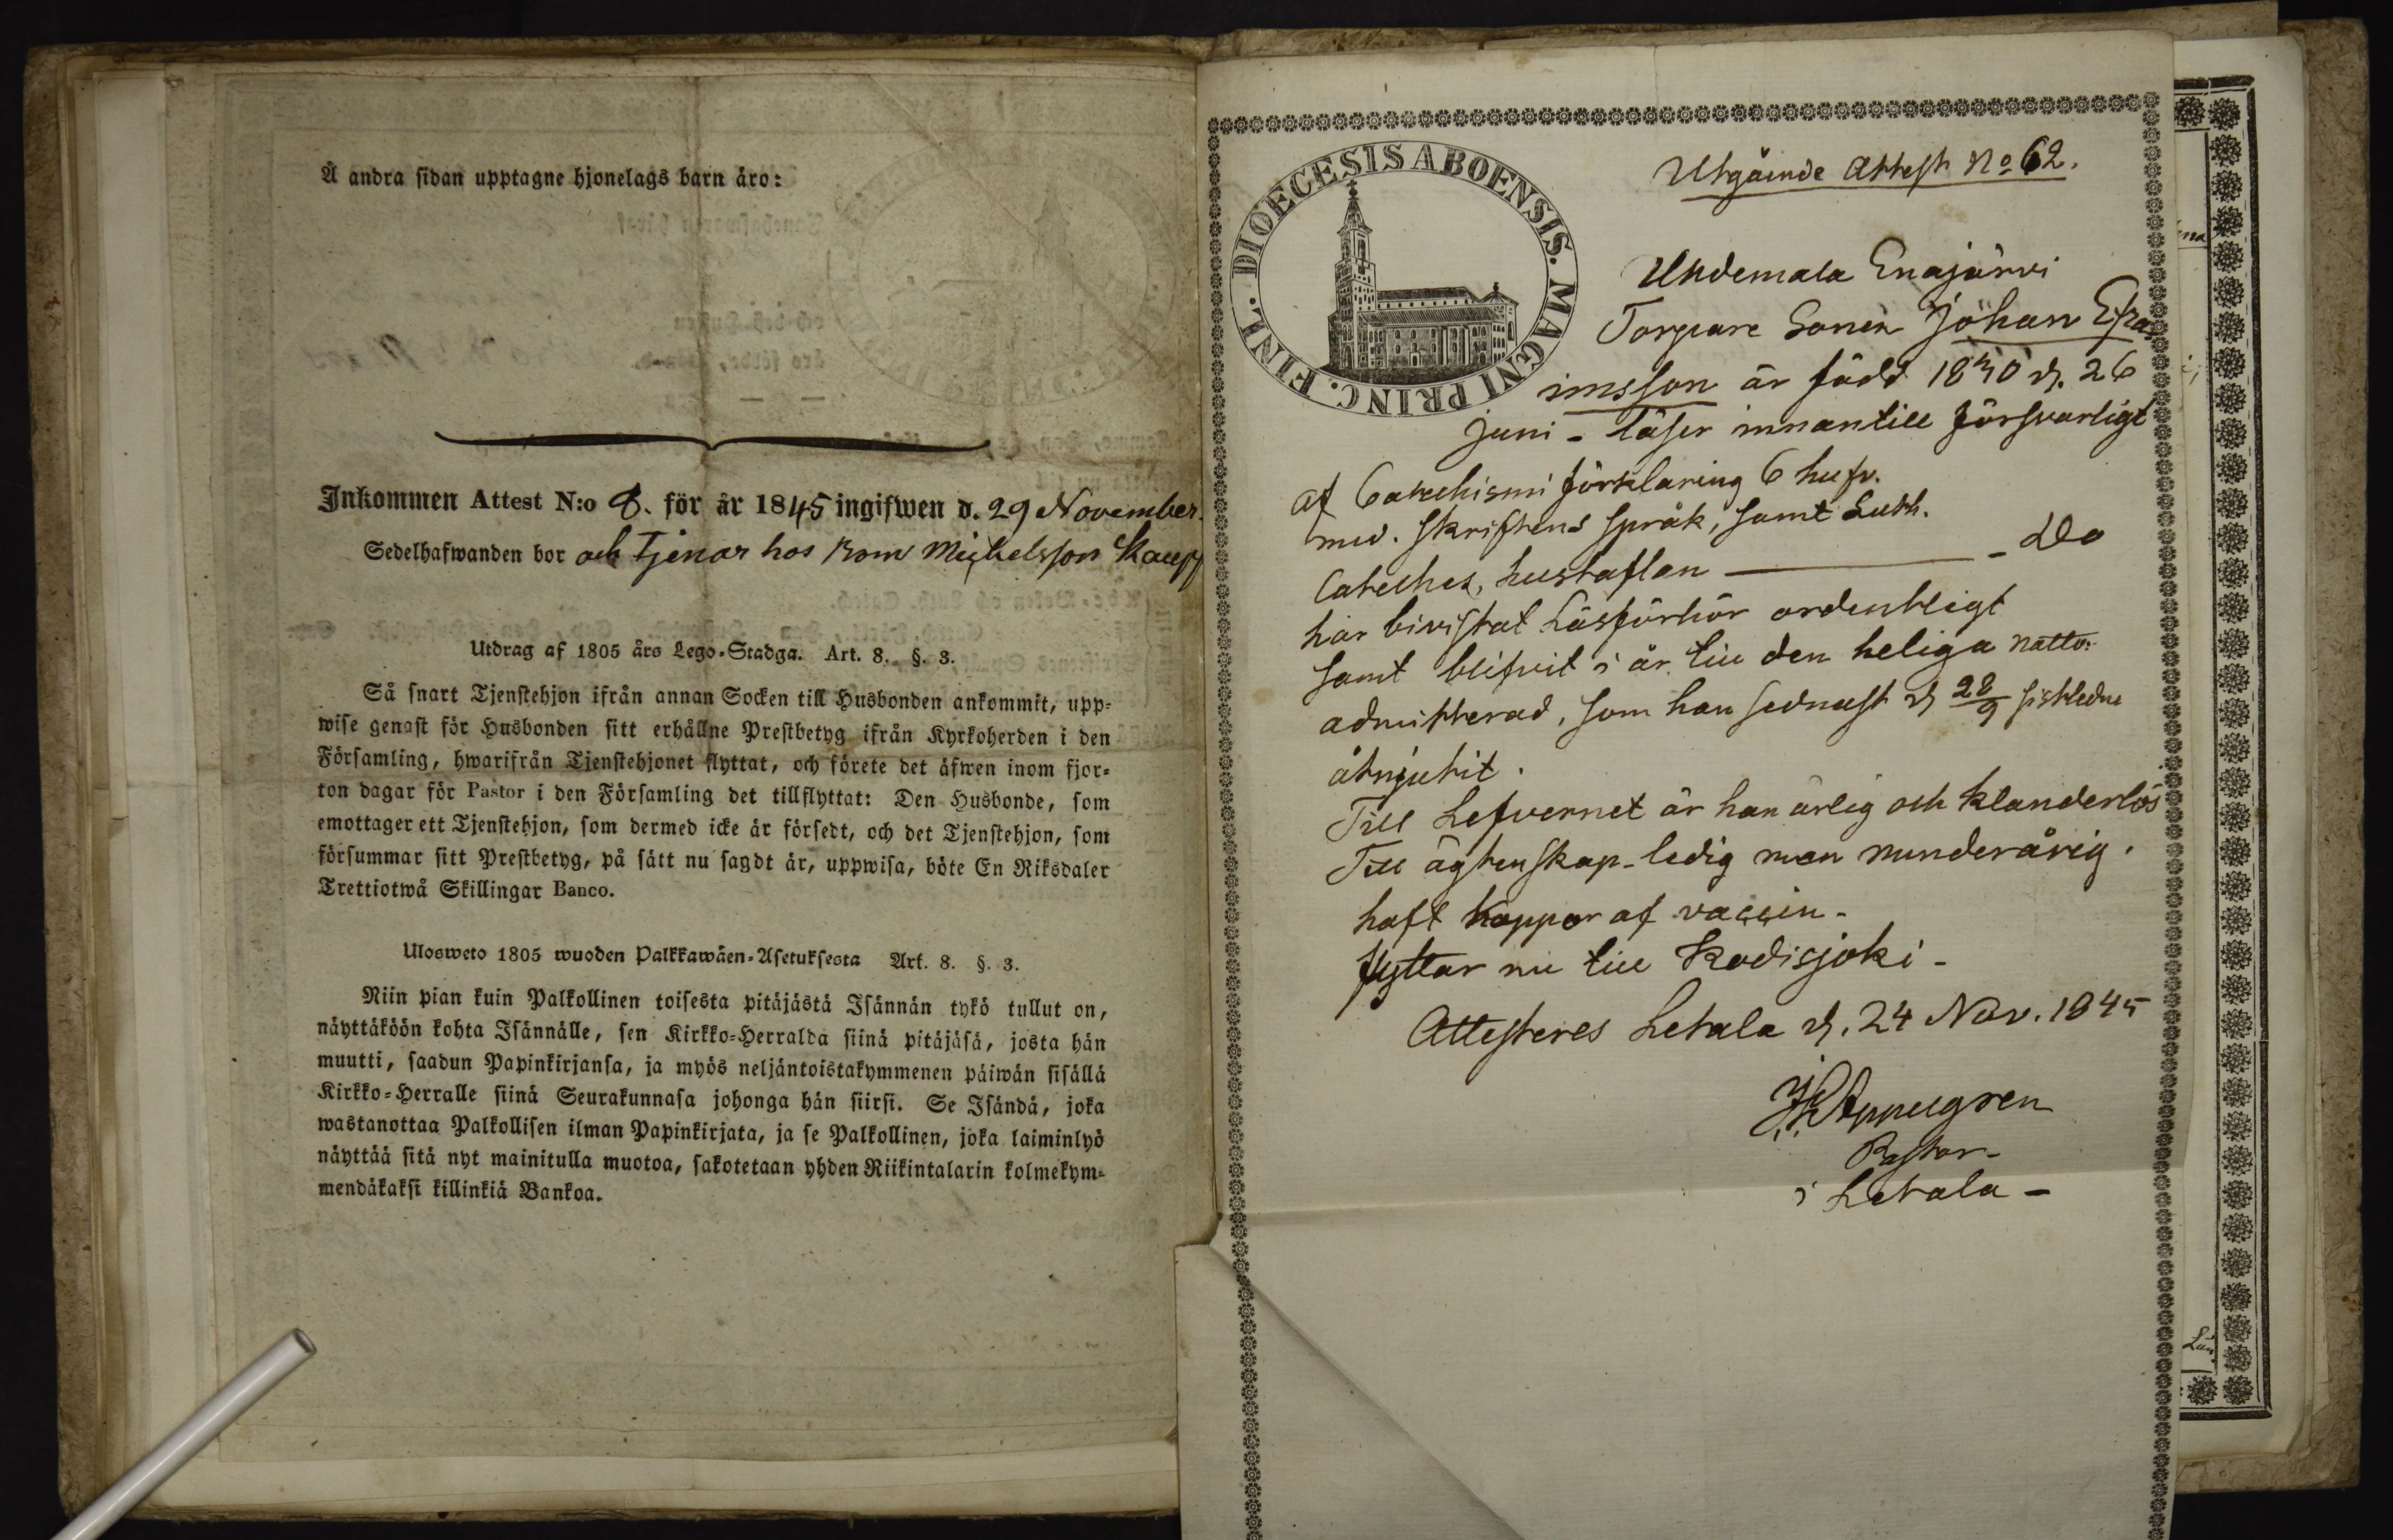 Å andra sidan upptagne hjonelags barn äro:
Inkommen Attest N:o 8. för år 1845 ingifwen d. 29 November.
Sedelhafwanden bor och Tjenar hos Michelsson Kaupp
Utdrag af 1805 års Lego-Stadga. Art. 8. §. 3.
Så snart Tjenstehjon ifrån annan Socken till Husbonden ankommit, upp-
wise genast för Husbonden sitt erhållne Prestbetyg ifrån Kyrkoherden i den
Församling, hwarifrån Tjenstehjonet flyttat, och förete det äfwen inom fjor-
ton dagar för Pastor i den Församling det tillflyttat: Den Husbonde, som
emottager ett Tjenstehjon, som dermed icke är försedt, och det Tjenstehjon, som
försummar sitt Prestbetyg, på sätt nu sagdt är, uppwisa, böte En Riksdaler
Trettiotwå Skillingar Banco.
Ulosweto 1805 wuoden Palkkawäen-Asetuksesta Art. 8. §. 3.
Niin pian kuin Palkollinen toisesta pitäjästä Isännän tykö tullut on,
näyttäköön kohta Isännälle, sen Kirkko-Herralda siinä pitäjäsä, josta hän
muutti, saadun Papinkirjansa, ja myös neljäntoistakymmenen päiwän sisällä
Kirkko-Herralle siinä Seurakunnasa johonga hän siirsi. Se Isändä, joka
wastanottaa Palkollisen ilman Papinkirjata, ja se Palkollinen, joka laiminlyö
näyttää sitä nyt mainitulla muotoa, sakotetaan yhden Riikintalarin kolmekym-
mendäkaksi killinkiä Bankoa.
DIOECESIS ABOENSIS. MAGNI PRINC. FINL.
Utgående Attest No 62.
Undemala Enajärvi
Torpare Sonen Johan Efra
imsson är född 1830 d. 26
Juni - läser innantill försvarligt
af Catechismi förklaring 6 hufv.
med. skriftens språk, samt Luth.
Cateches, hustaflan - Do
har bivistat Läsförhör ordentligt
samt blifvit i år till den heliga nattv.
admitterad, som han sednast d 28/9 sistledne
åtnjutit.
Till Lefvernet är han ärlig och klanderlös
Till ägtenskap ledig men minderårig.
haft koppor af vaccin -
flyttar nu till Kodisjoki -
Attesteres Letala d. 24 Nov. 1845
Appelgren
Pastor -
i Letala -